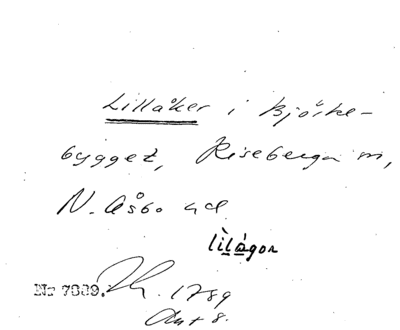 Lillåker i Björke-
bygget, Riseberga sn,
N. Åsbo hd
lilågor
No 7089.
1789
Akt 8.